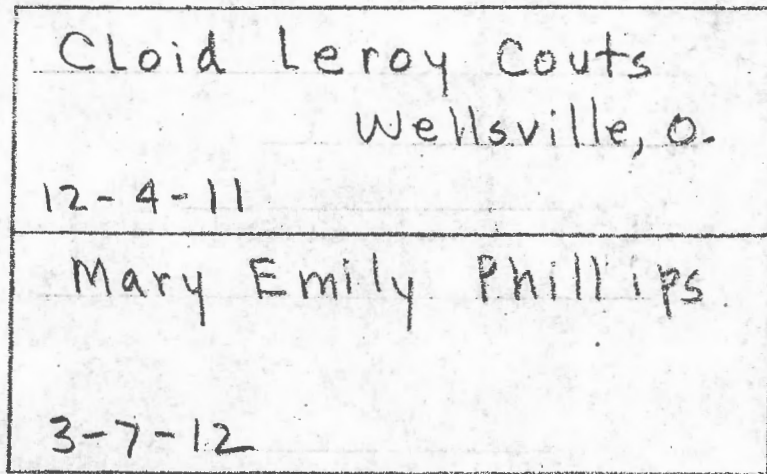 Cloid Leroy Couts
Wellsville, O.
12-4-11
Mary Emily Phillips
3-7-12